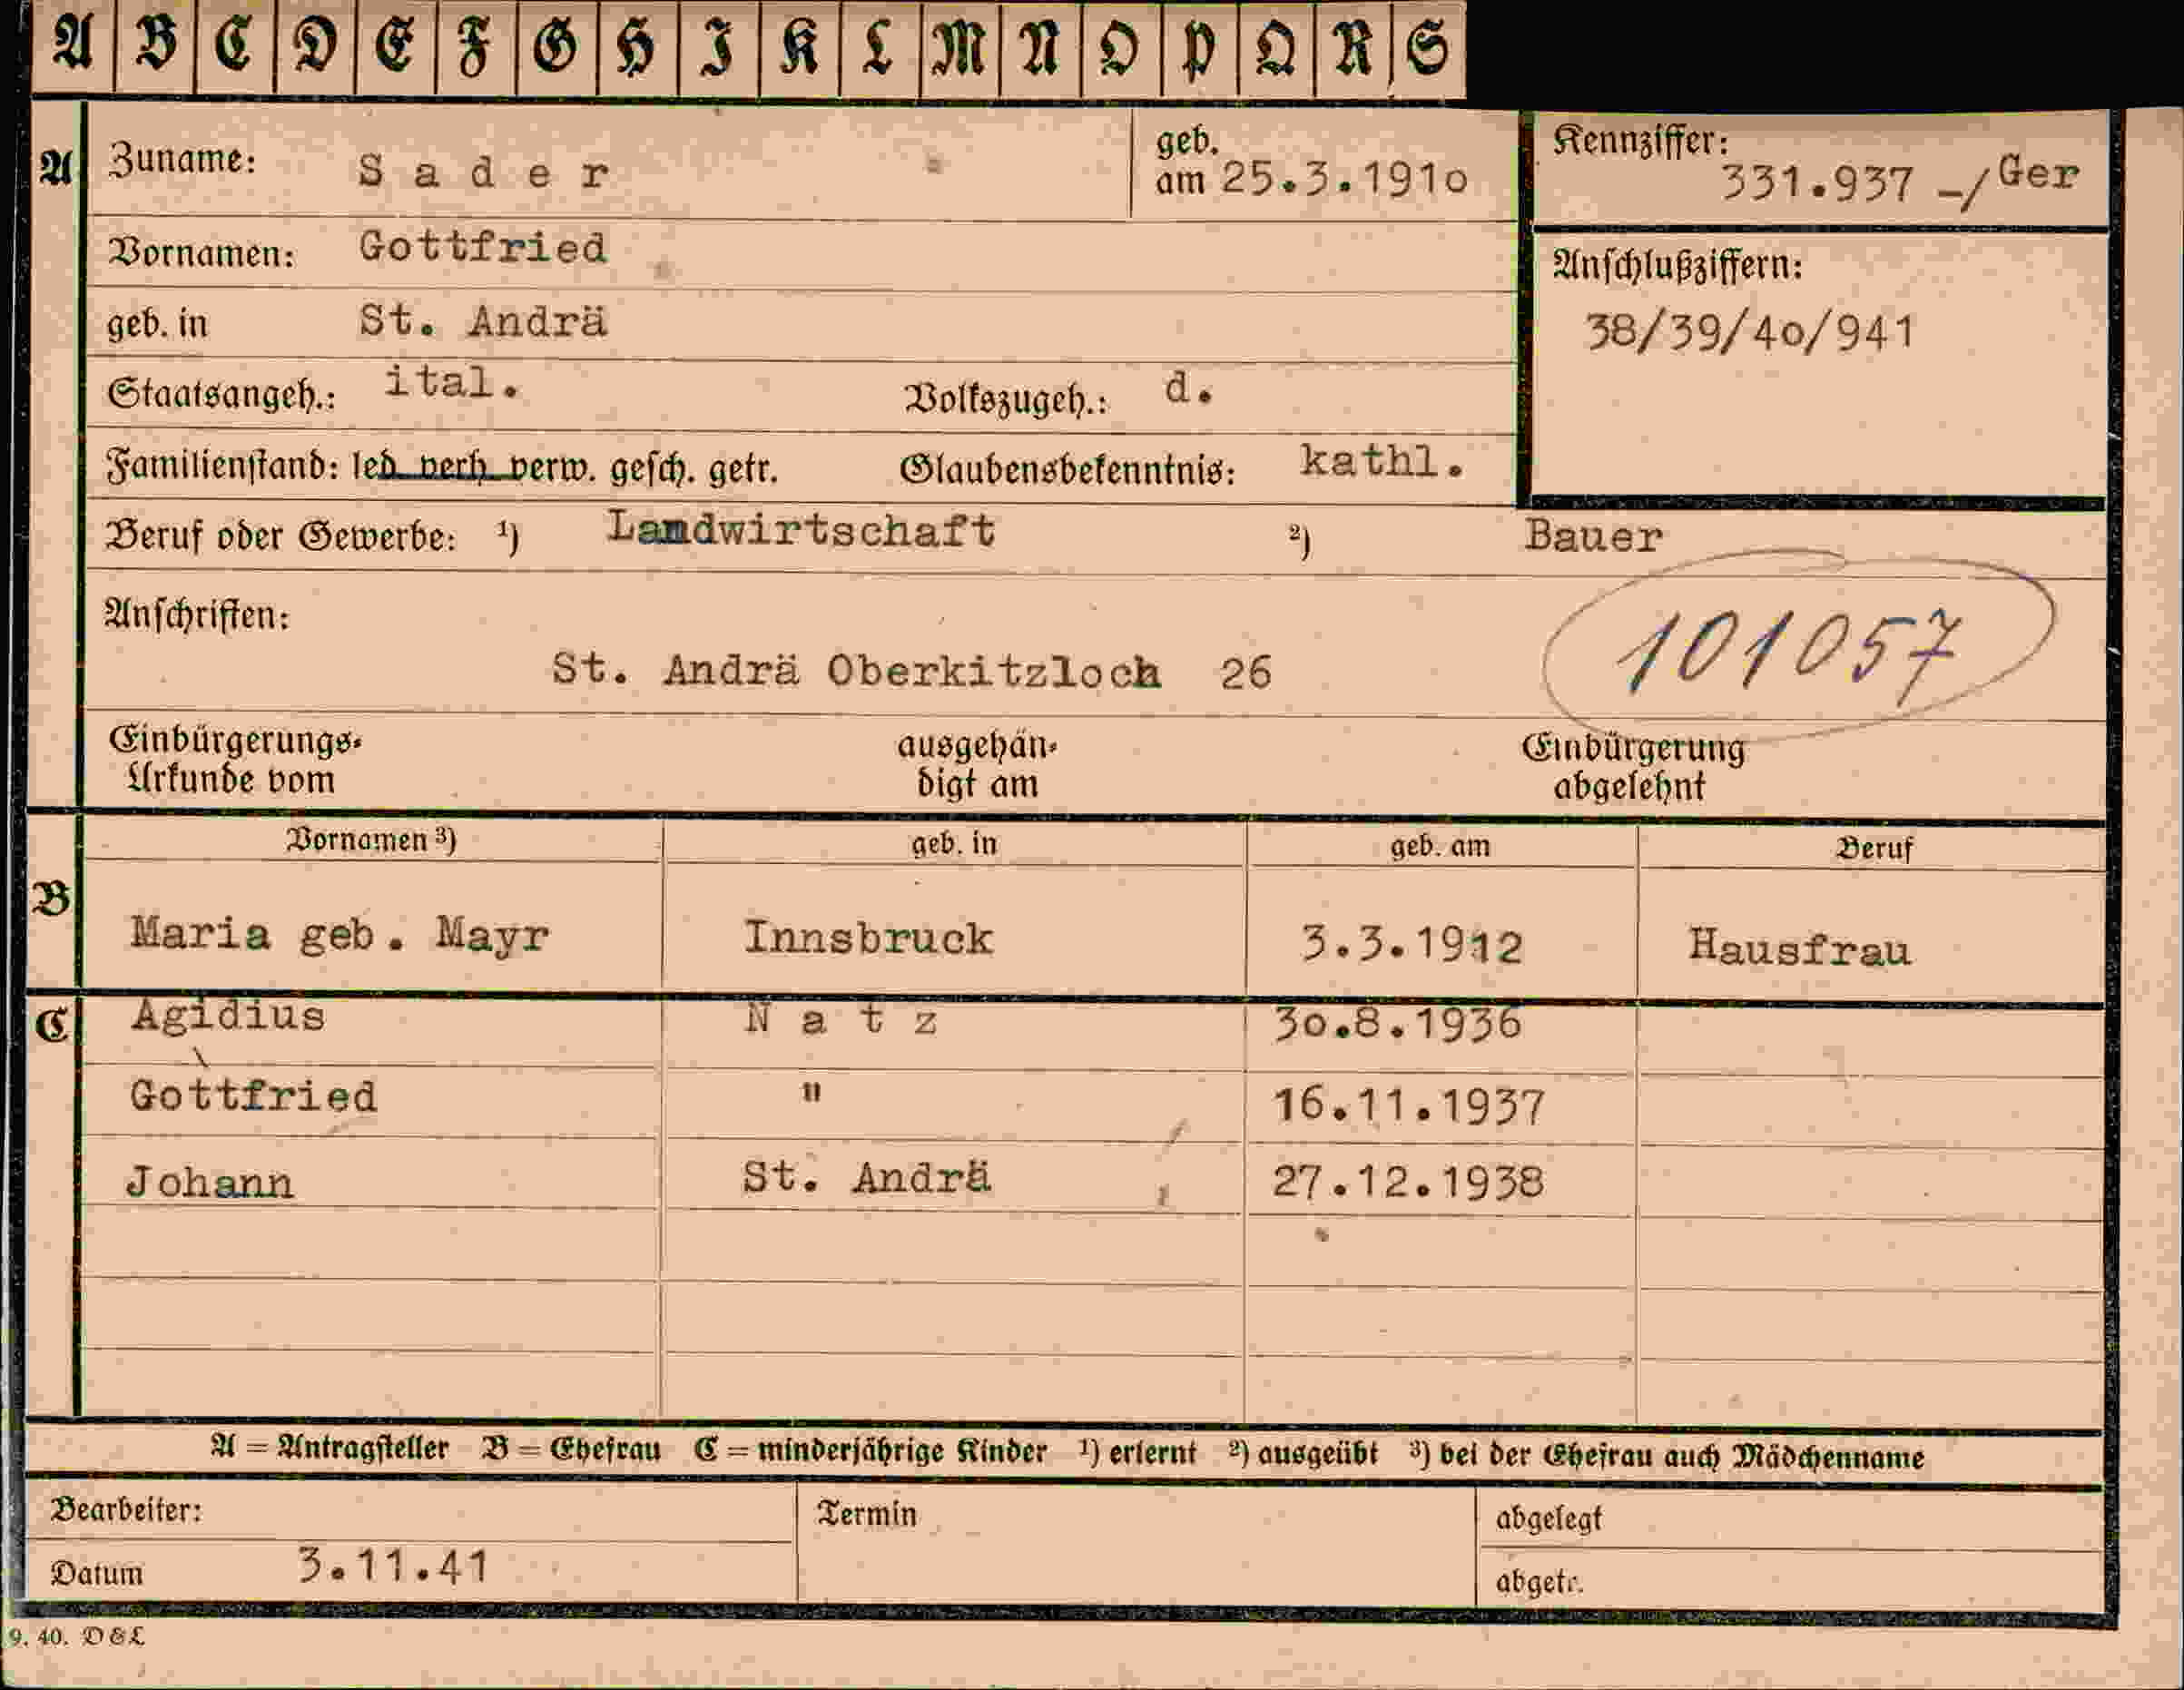 A B C D E F G H I K L M N O P Q R S
A Zuname: Sader geb. am 25.3.1910 Kennziffer: 331.937 -/Ger
Vornamen: Gottfried
geb. in St. Andrä
Anschlußziffern: 38/39/40/941
Staatsangeh.: ital. Volkszugeh.: d.
Familienstand: led. verh. verw. gesch. getr. Glaubensbekenntnis: kathl.
Beruf oder Gewerbe: 1) Landwirtschaft 2) Bauer
Anschriften:
St. Andrä Oberkitzloch 26
101057
Einbürgerungs-Urkunde vom ausgehändigt am Einbürgerung abgelehnt
Vornamen 3) geb. in geb. am Beruf
B Maria geb. Mayr Innsbruck 3.3.1912 Hausfrau
C Agidius Natz 30.8.1936
Gottfried " 16.11.1937
Johann St. Andrä 27.12.1938
A = Antragsteller B = Ehefrau C = minderjährige Kinder 1) erlernt 2) ausgeübt 3) bei der Ehefrau auch Mädchenname
Bearbeiter: Termin abgelegt
Datum 3.11.41 abgetr.
9. 40. D & L